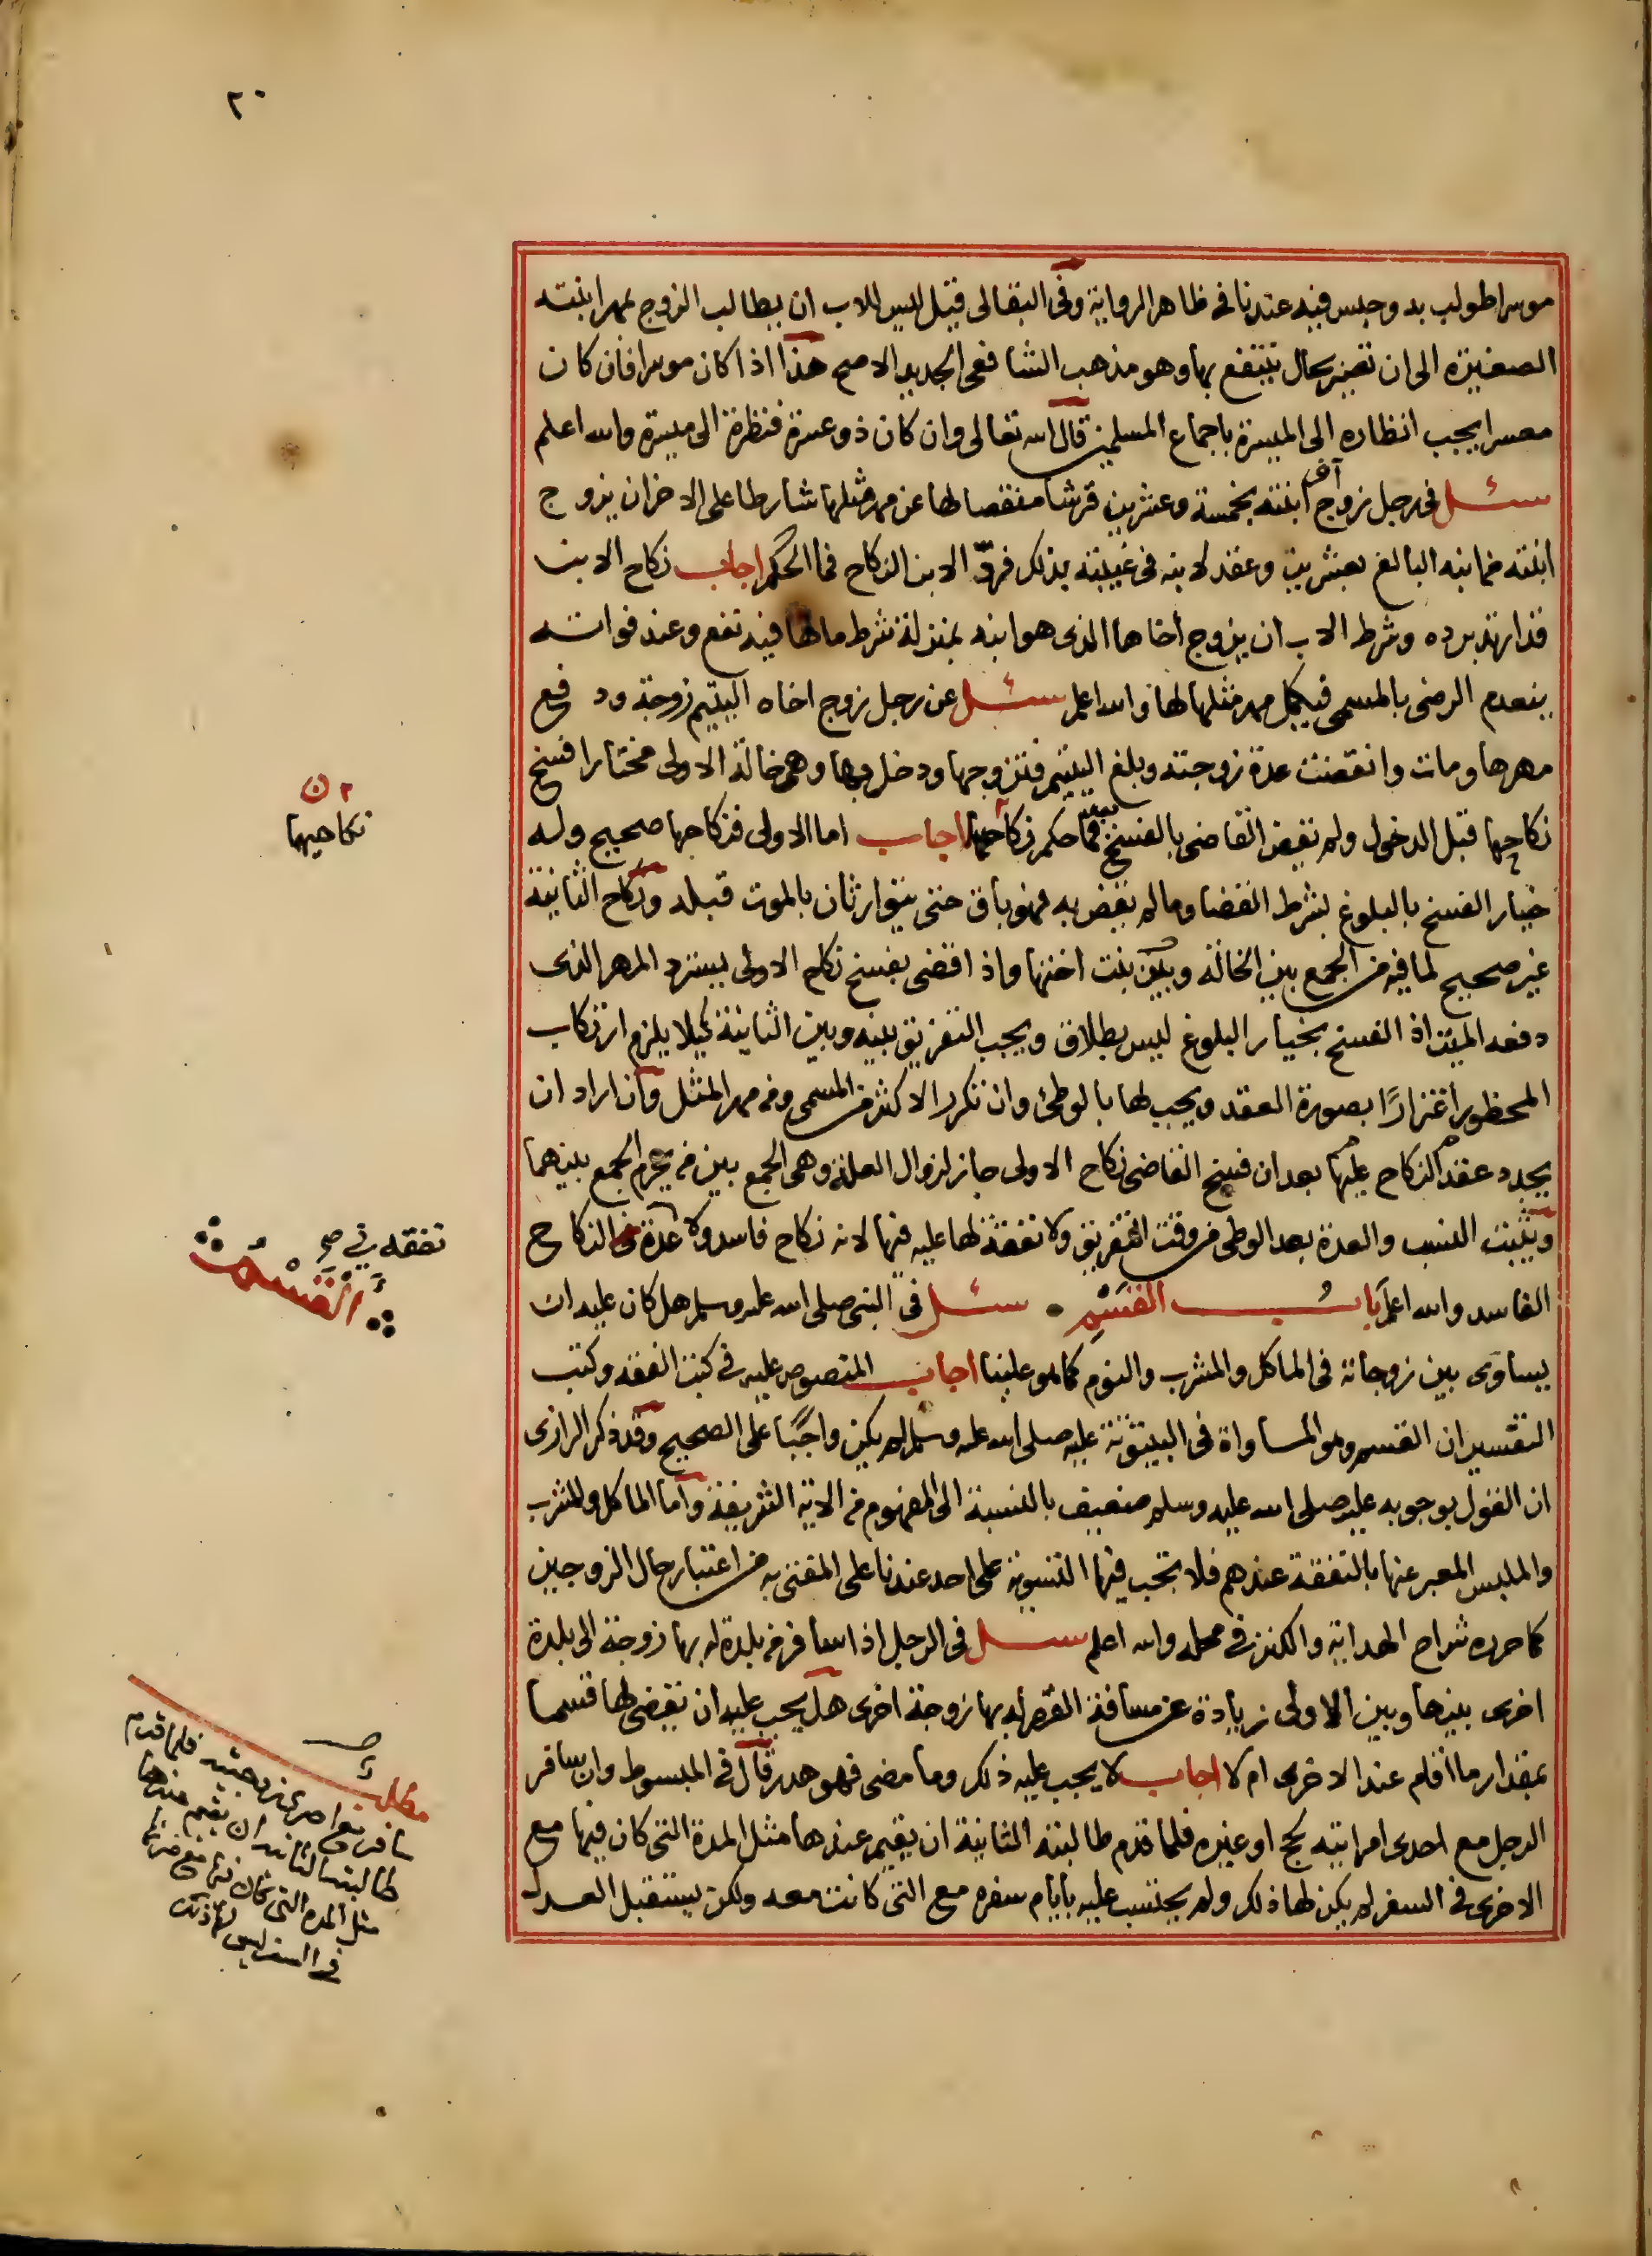 ٢٠
موسرا طولب به وحبس فيه عندنا في ظاهر الرواية وفي البقالي قيل ليس للاب ان يطالب الزوج بمهر ابنته
الصغيرة الى ان تصير بحال ينتفع بها وهو مذهب الشافعي الجديد الاصح هذا اذا كان موسرا فان كان
معسرا يجب انظاره الى الميسرة باجماع المسلمين قال الله تعالى وان كان ذو عسرة فنظرة الى ميسرة والله اعلم
سئل في رجل زوج آخر ابنته بخمسة وعشرين قرشا منقصا لها عن مهر مثلها شارطا على الاخر ان يزوج
ابنته من ابنه البالغ بعشرين وعقد لابنه في غيبته بذلك فردّ الابن النكاح فما الحكم اجاب نكاح الابن
قد ارتد برده وشرط الاب ان يزوج اخاها الذي هو ابنه بمنزلة شرط ما لها فيه نفع وعند فواته
ينعدم الرضى بالمسمى فيكمل مهر مثلها لها والله اعلم سئل عن رجل زوج اخاه اليتيم زوجة ودفع
مهرها ومات وانقضت عدة زوجته وبلغ اليتيم فتزوجها ودخل بها وهي خالة الاولى مختارا فسخ
نكاحها قبل الدخول ولم يقض القاضي بالفسخ بعد فما حكم نكاحها اجاب اما الاولى فنكاحها صحيح وله
خيار الفسخ بالبلوغ بشرط القضا وما لم يقض به فهو باق حتى يتوارثان بالموت قبله ونكاح الثانية
غير صحيح لما فيه من الجمع بين الخالة وبين بنت اختها واذا قضى بفسخ نكاح الاولى يسترد المهر الذي
دفعه الميت اذ الفسخ بخيار البلوغ ليس بطلاق ويجب التفريق بينه وبين الثانية كيلا يلزم ارتكاب
المحظور اغترارًا بصورة العقد ويجب لها بالوطئ وان تكرر الاكثر من المسمى ومن مهر المثل وان اراد ان
يجدد عقد النكاح عليها بعد ان فسخ القاضي نكاح الاولى جاز لزوال العلة وهي الجمع بين من يحرم الجمع بينهما
ويثبت النسب والعدة بعد الوطى من وقت التفريق ولا نفقة لها عليه فيها لانه نكاح فاسد ولا عدة في النكاح
الفاسد والله اعلم بابُ القَسْمِ سئل في النبي صلى الله عليه وسلم هل كان عليه ان
يساوى بين زوجاته في الماكل والمشرب والنوم كما هو علينا اجاب المنصوص عليه في كتب الفقه وكتب
التفسير ان القسم وهو المساواة في البيتوتة عليه صلى الله عليه وسلم لم يكن واجبًا على الصحيح وقد ذكر الرازى
ان القول بوجوبه عليه صلى الله عليه وسلم ضعيف بالنسبة الى المفهوم من الاية الشريفة وأما الماكل والمشرب
والملبس المعبر عنها بالنفقة عندهم فلا تجب فيها التسوية على احد عندنا على المفتى به من اعتبار حال الزوجين
كما حرره شراح الهداية والكنز في محله والله اعلم سئل في الرجل اذا سافر من بلدة له بها زوجة الى بلدة
اخرى بينها وبين الاولى زيادة عن مسافة القصر له بها زوجة اخرى هل يجب عليه ان يقضى لها قسما
بمقدار ما اقام عند الاخرى ام لا اجاب لا يجب عليه ذلك وما مضى فهو هدر قال في المبسوط وان سافر
الرجل مع احدى امراتيه لحج او غيره فلما قدم طالبته الثانية ان يقيم عندها مثل المدة التى كان فيها مع
الاخرى في السفر لم يكن لها ذلك ولم يحتسب عليه بايام سفره مع التى كانت معه ولكن يستقبل العدل
ن
نكاحيهما
القَسْم
مطلب
سافر مع احدى زوجتيه فلما قدم
طالبته الثانية ان يقيم عندها
مثل المدة التى كان فيها مع ضرتها
في السفر ليس لها ذلك